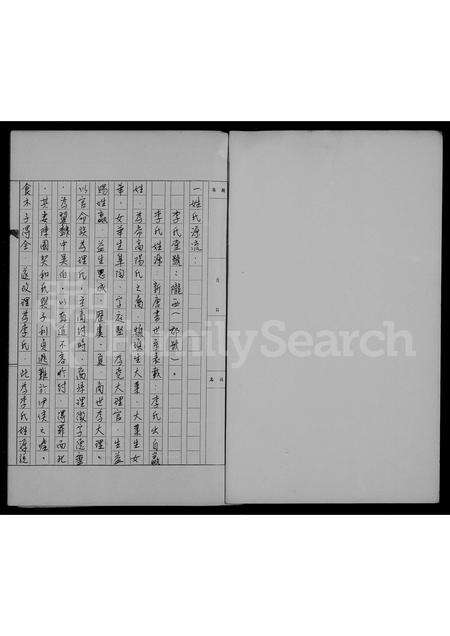 一姓氏源流：
李氏堂號：隴西（郡號）。
李氏姓源：新唐書世系表載：李氏出自嬴
姓，為帝高陽氏之裔。顓頊生大業，大業生女
華，女華生皋陶，字庭堅，為堯大理官，生益
賜姓嬴，益生恩成，歷虞、夏、商世李大理，
以官命族為理氏，至商紂時，裔孫理徵字德靈
，為翼隸中吳伯，以直道不容於紂，得罪而死
，其妻陳國契和氏與子利貞逃難於伊侯之墟，
食木子得全，遂改理為李氏，此為李氏姓源從
FamilySearch